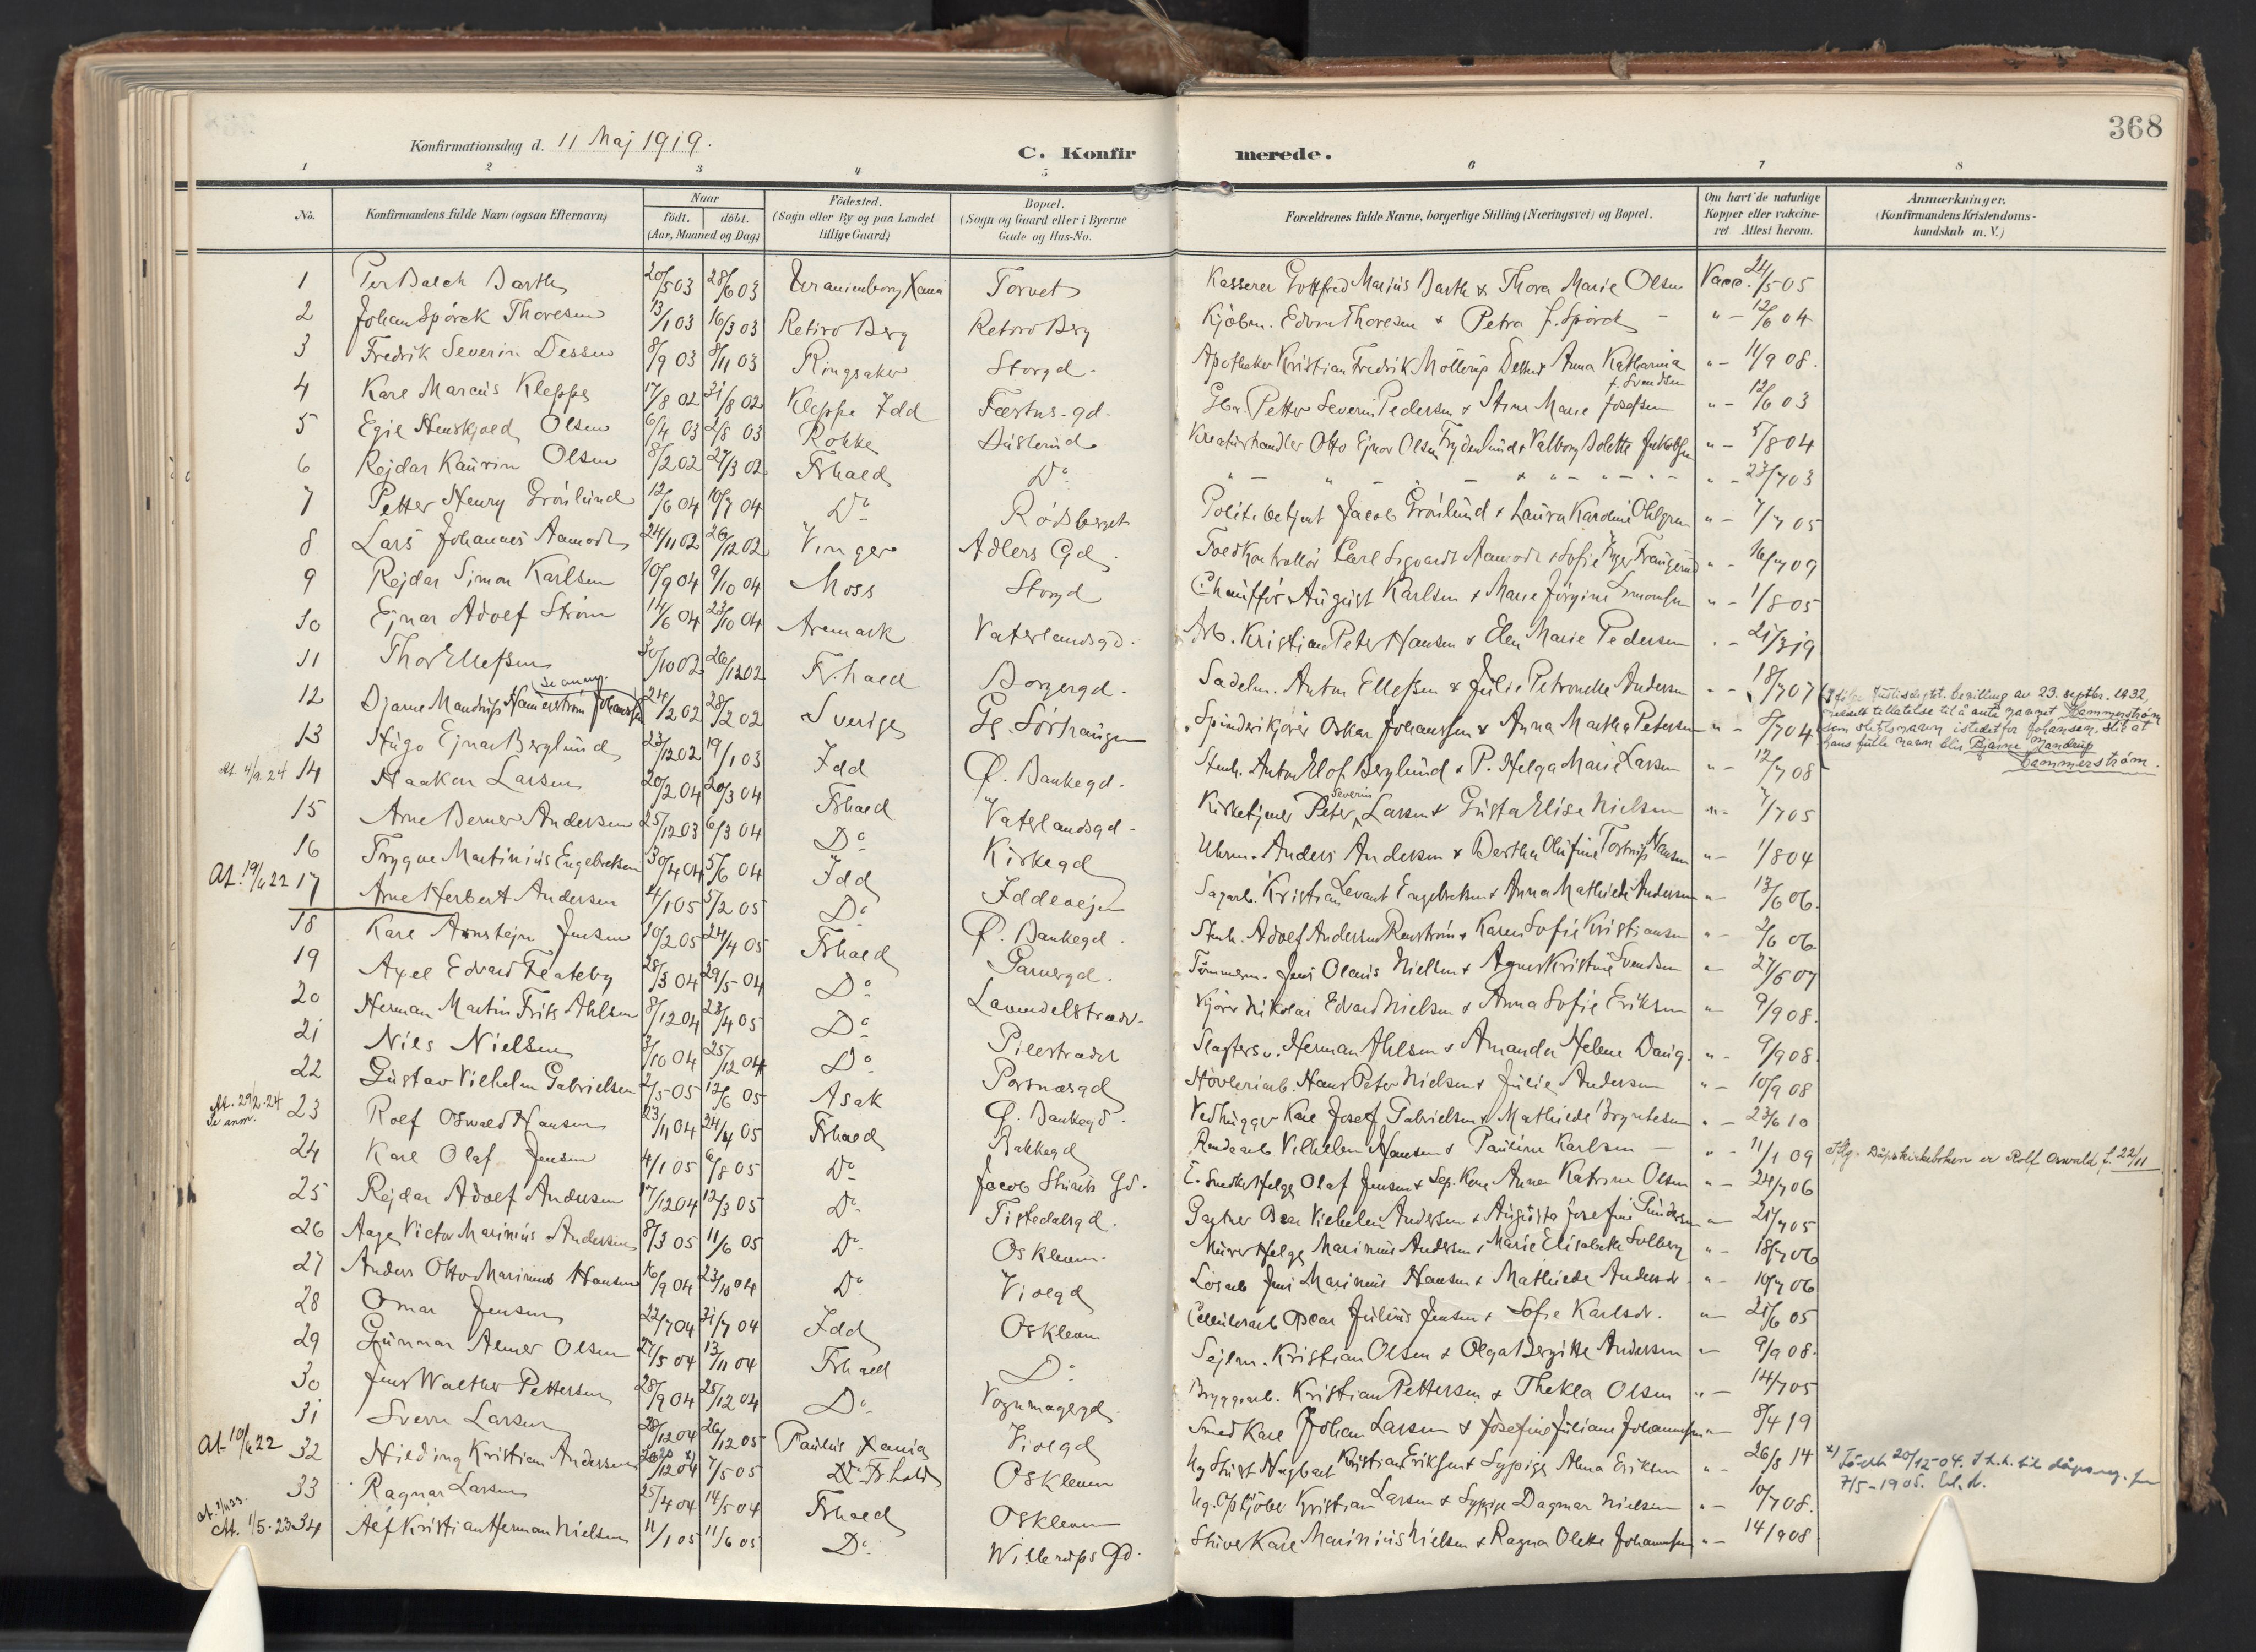 368
Konfirmationsdag d. 11 Maj 1919.
C. Konfir merede.
1 2 3 4 5 6 7 8
No. Konfirmandens fulde Navn (ogsaa Efternavn) Naar født. døbt. (Aar, Maaned og Dag) Fødested. (Sogn eller By og paa Landet tillige Gaard) Bopæl. (Sogn og Gaard eller i Byerne Gade og Hus-No. Forældrenes fulde Navne, borgerlige Stilling (Næringsvei) og Bopæl. Om havt de naturlige Kopper eller vakcineret Attest herom. Anmærkninger. (Konfirmandens Kristendomskundskab m. V.)
1 Per Balch Barth 20/5 03 28/6 03 Uranienborg Xania Torvet Kasserer Gottfred Marius Barth & Thora Marie Olsen Vacc. 24/5 05
2 Johan Spörck Thoresen 13/1 03 16/3 03 Retiro Berg Retiro Berg Kjøbm. Edvin Thoresen & Petra f. Spörck " - 12/6 04
3 Fredrik Severin Dessen 8/9 03 8/11 03 Ringsaker Storgd. Apotheker Kristian Fredrik Mollerup Dessen & Anna Katharina f. Svendsen " - 11/9 08.
4 Karl Marcus Kleppe 17/8 02 31/8 02 Kleppe Idd Fæstns-gd. Gbr. Petter Severin Pedersen & Stina Marie Josefsen " - 12/6 03
5 Egil Henskjold Olsen 6/4 03 2/8 03 Rokke Kreaturhandler Otto Ejnar Olsen Frydenlund & Valborg Bolette Jakobsen " - 5/8 04
6 Rejdar Kaurin Olsen 8/2 02 27/3 02 Frhald Do " - " - " - 23/7 03
7 Petter Henry Grönlund 12/6 04 10/7 04 Do Rødsberget Politibetjent Jacob Grönlund & Laura Karoline Ohlgren " - 7/7 05
8 Lars Johannes Aamodt 24/11 02 26/12 02 Vinger Adlers Gd. Toldkontrollör Carl Sigvardt Aamodt & Sofie " - 16/7 09
9 Rejdar Simon Karlsen 10/9 04 9/10 04 Moss Storgd Chauffør August Karlsen & Marie Jørgine Simonsen " - 1/8 05
10 Ejnar Adolf Strøm 14/6 04 23/10 04 Aremark Vaterlandsgd. Arb. Kristian Peter Hansen & Elen Marie Pedersen " - 21/3 19
11 Thor Ellefsen 30/10 02 26/12 02 Fr.hald Borgergd. Sadelm. Anton Ellefsen & Julie Petronelle Andersen " - 18/7 07
12 Bjarne Mandrup Hamerström Johansen Se anm. 24/12 02 28/2 02 Sverige Gl. Sørhaugen Spinderikjører Oskar Johansen & Anna Martha Petersen " - 8/7 04
Ifølge Justisdeptet. bevilling av 23. septbr. 1932,
tillatelse til å anta navnet Hammerstrøm
som slektsnavn istedet for Johansen, slik at
hans fulle navn blir Bjarne Mandrup
Hammerstrøm.
13 Hugo Ejnar Berglund 23/12 02 19/1 03 Idd Ø. Bankegd. Stenh. Anton Elof Berglund & P. Helga Marie Larsen " - 12/7 08
At. 4/9.24 14 Haakon Larsen 20/2 04 20/3 04 Frhald Vaterlandsgd. Kirketjener Peter Severin Larsen & Gusta Elise Nielsen " - 7/7 05
15 Arne Berner Andersen 25/12 03 6/3 04 Do Kirkegd Uhrm. Anders Andersen & Bertha Olufine Hansen " - 1/8 04
16 Trygve Martinius Engebretsen 30/4 04 5/6 04 Idd Iddevejen Sagarb. Kristian Levant Engebretsen & Anna Mathilde Andersen " - 13/6 06.
At. 19/6 22 17 Arne Herbert Andersen 4/1 05 5/2 05 Do Ø. Bankegd. Stenh. Adolf Andersen Renström & Karen Sofie Kristiansen " - 2/6 06
18 Karl Arnstejn Jensen 10/2 05 24/4 05 Frhald Garvergd. Tømmerm. Jens Olaus Nielsen & Agnes Kristine Svendsen " - 27/6 07
19 Axel Edvard Flateby 28/3 04 29/5 04 Do Lavendelstrædet Kjører Nikolai Edvard Nielsen & Anna Sofie Eriksen " - 9/9 08.
20 Herman Martin Frik Ahlsen 8/12 04 23/4 05 Do Pilestrædet Slagtersv. Herman Ahlsen & Amanda Helene Daug. " - 9/9 08.
21 Nils Nielsen 3/10 04 25/12 04 Do Portnergd Høvleriarb. Hans Peter Nielsen & Julie Andersen " - 10/9 08
22 Gustav Vilhelm Gabrielsen 2/5 05 12/6 05 Asak Ø. Bankegd. Vedhugger Karl Josef Gabrielsen & Mathilde Bryntesen " - 23/6 10
At. 29/2.24 Se anm. 23 Rolf Oswald Hansen 23/11 04 24/4 05 Frhald Bakkegd Vilhelm Hansen & Pauline Karlsen " - 11/1 09 Iflg. Dåpskirkeboken er Rolf Oswald f. 22/11
24 Karl Olaf Jensen 4/1 05 6/8 05 Do Jacob Gd. E. Snedker Helge Olaf Jensen & Sep. Kone Anna Katrine Olsen " - 24/7 06
25 Rejdar Adolf Andersen 17/12 04 12/3 05 Do Tistedalsgd. Gartner Vilhelm Andersen & Augusta Josefine Gundersen " - 21/7 05
26 Aage Victor Marinius Andersen 8/3 05 11/6 05 Do Oskleven. Murer Helge Marinius Andersen & Marie Elisabeth Solberg " - 18/7 06
27 Anders Otto Marinius Hansen 16/9 04 23/10 04 Do Violgd Løsarb Jens Marinius Hansen & Mathilde Andersdr " - 10/7 06
28 Omar Jensen 22/7 04 31/7 04 Idd Oskleven Oscar Julius Jensen & Sofie Karlsdr. " - 21/6 05
29 Gunnar Almer Olsen 27/5 04 13/11 04 Frhald Do Sejlm. Kristian Olsen & Olga Bergitte Andersen " - 9/9 08.
30 Jens Walther Pettersen 28/9 04 25/12 04 Do Vognmagergd. Bryggearb. Kristian Pettersen & Thekla Olsen " - 14/7 05
31 Sverre Larsen 28/12 04 26/12 05 Paulus Xania Violgd Smed Karl Johan Larsen & Josefine Juliane Johannesen " - 8/4 19
At 10/6 22 32 Hilding Kristian Andersen 20/12 04 x) 7/5 05 Frhald Oskleven Ug Kristian Eriksen & Sypige Alma Eriksen " - 26/8 14
x) Födt 20/12-04. I.h.t. til dåpsreg. for
7/5-1905.
33 Ragnar Larsen 25/4 04 14/5 04 Frhald Oskleven Ug. Opkjøber Kristian Larsen & Sypige Dagmar Nielsen " - 10/7 08.
At. 1/5-23 34 Alf Kristian Herman Nielsen 11/1 05 11/6 05 Do Willerups Gd. Stuver Karl Marinius Nielsen & Ragna Olette Johannesen " - 14/9 08